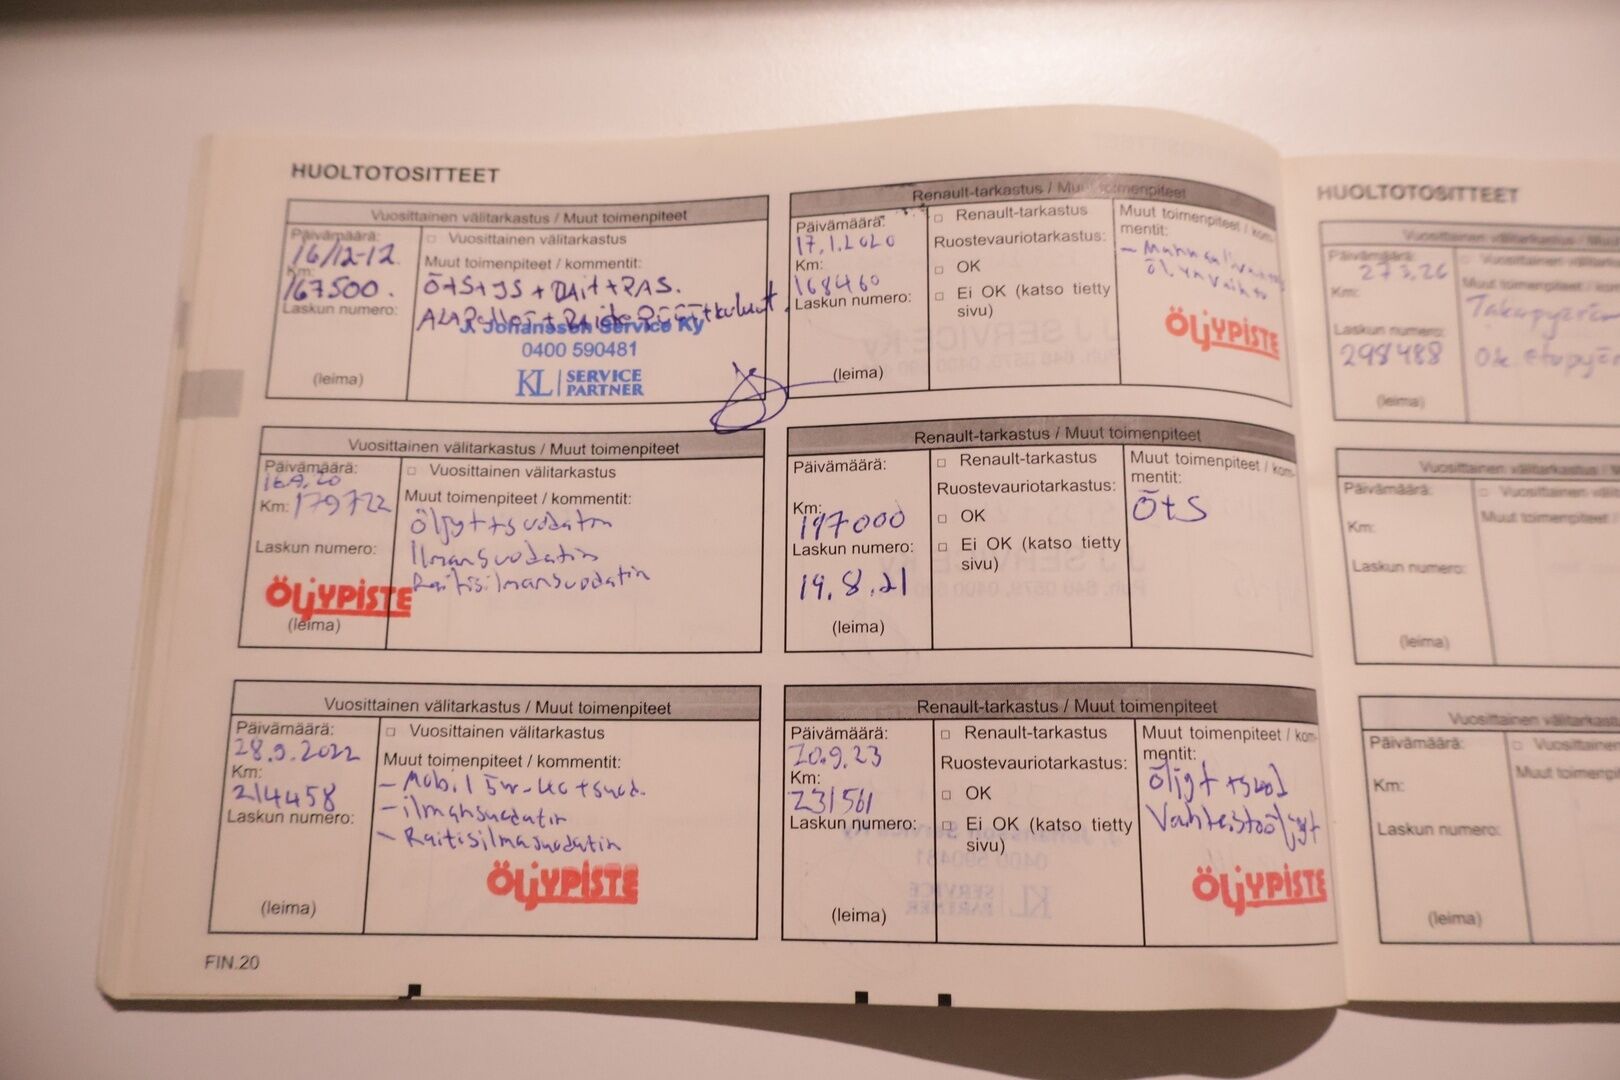 HUOLTOTOSITTEET
Vuosittainen välitarkastus / Muut toimenpiteet
Päivämäärä:
16/12-12.
Km:
167500.
Laskun numero:
(leima)
□ Vuosittainen välitarkastus
Muut toimenpiteet / kommentit:
Õ+S+IS+RAit+RAS.
J. Johansson Service Ky
0400 590481
KL SERVICE
PARTNER
Renault-tarkastus / Muut toimenpiteet
Päivämäärä:
17.1.2020
Km:
168460
Laskun numero:
(leima)
□ Renault-tarkastus
Ruostevauriotarkastus:
□ OK
□ Ei OK (katso tietty
sivu)
Muut toimenpiteet / kom-
mentit:
öljynvaihto
ÖLJYPISTE
Vuosittainen välitarkastus / Muut toimenpiteet
Päivämäärä:
16.9.20
Km: 179722
Laskun numero:
ÖLJYPISTE
(leima)
□ Vuosittainen välitarkastus
Muut toimenpiteet / kommentit:
Öljyt+suodatin
Ilmansuodatin
Raitisilmansuodatin
Renault-tarkastus / Muut toimenpiteet
Päivämäärä:
Km:
197000
Laskun numero:
19.8.21
(leima)
□ Renault-tarkastus
Ruostevauriotarkastus:
□ OK
□ Ei OK (katso tietty
sivu)
Muut toimenpiteet / kom-
mentit:
Õ+S
Vuosittainen välitarkastus / Muut toimenpiteet
Päivämäärä:
28.9.2022
Km:
214458
Laskun numero:
(leima)
□ Vuosittainen välitarkastus
Muut toimenpiteet / kommentit:
- Mobil 5w-40+suod.
- ilmansuodatin
- Raitisilmasuodatin
ÖLJYPISTE
Renault-tarkastus / Muut toimenpiteet
Päivämäärä:
20.9.23
Km:
231561
Laskun numero:
(leima)
□ Renault-tarkastus
Ruostevauriotarkastus:
□ OK
□ Ei OK (katso tietty
sivu)
Muut toimenpiteet / kom-
mentit:
öljyt+suod
Vaihteistoöljyt
ÖLJYPISTE
FIN.20
HUOLTOTOSITTEET
Vuosittainen välitarkastus / Muut
Päivämäärä:
Km:
Laskun numero:
298488
(leima)
Vuosittainen
Muut toimenpiteet /
Vuosittainen välitarkastus /
Päivämäärä:
Km:
Laskun numero:
(leima)
□ Vuosittainen
Muut toimenpiteet /
Vuosittainen välitarkastus
Päivämäärä:
Km:
Laskun numero:
(leima)
□ Vuosittainen
Muut toimenpiteet